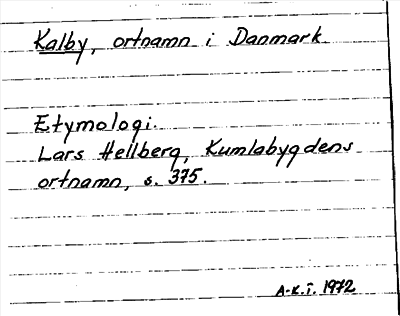 Kalby, ortnamn i Danmark
Etymologi.
Lars Hellberg, Kumlabygdens
ortnamn, s. 375.
A-K.I. 1972